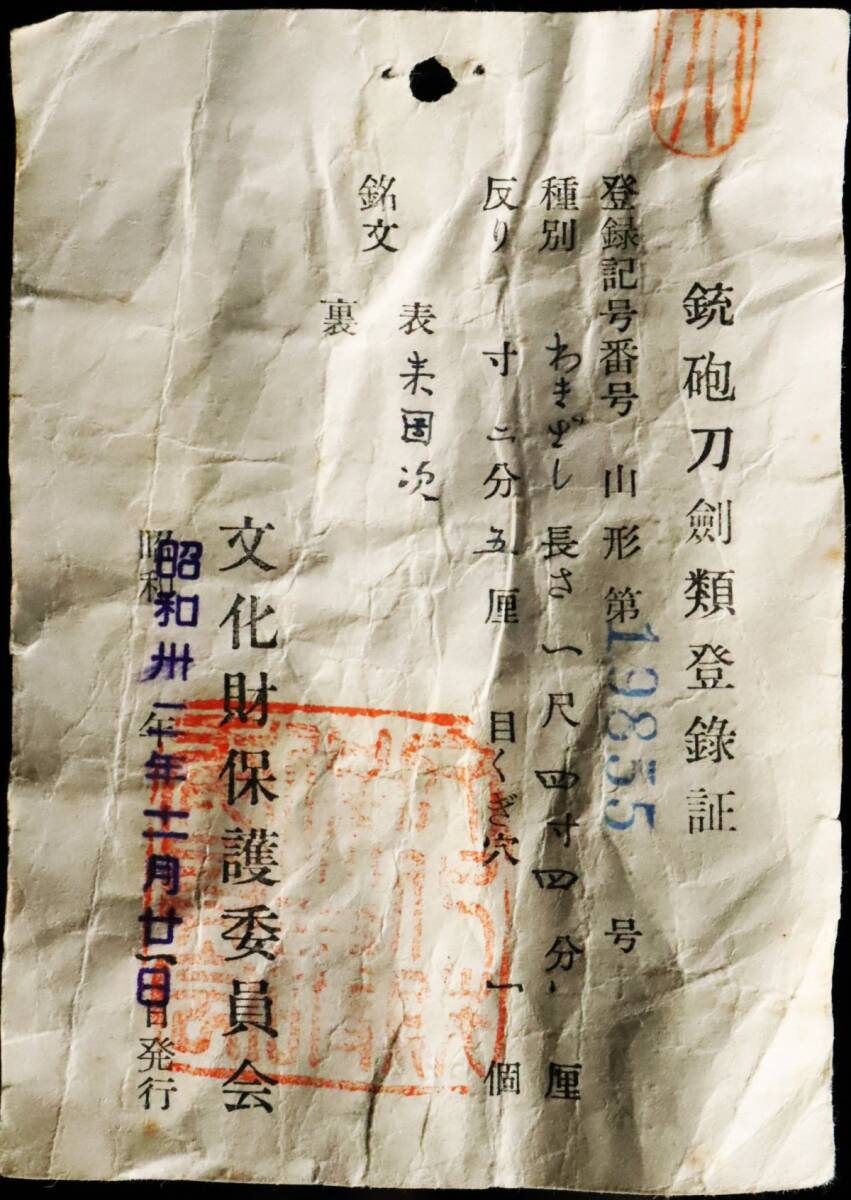 銃砲刀劍類登錄証
登録記号番号 山形 第19855号
種別 わきざし 長さ 一尺四寸四分 厘
反り 寸二分五厘 目くぎ穴 一個
銘文
表 来国次
裏
文化財保護委員会
昭和卅一年十一月廿一日発行